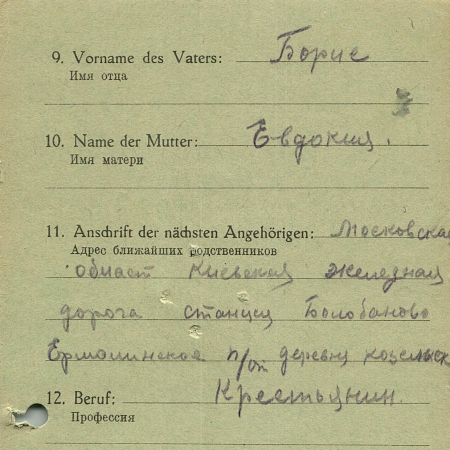 9. Vorname des Vaters: Борис
Имя отца
10. Name der Mutter: Евдокия.
Имя матери
11. Anschrift der nächsten Angehörigen: Московская
Адрес ближайших родственников
област Киевская железная
дорога станция Болобаново
Ермолинское п/от деревня козельск
12. Beruf: Крестьянин.
Профессия